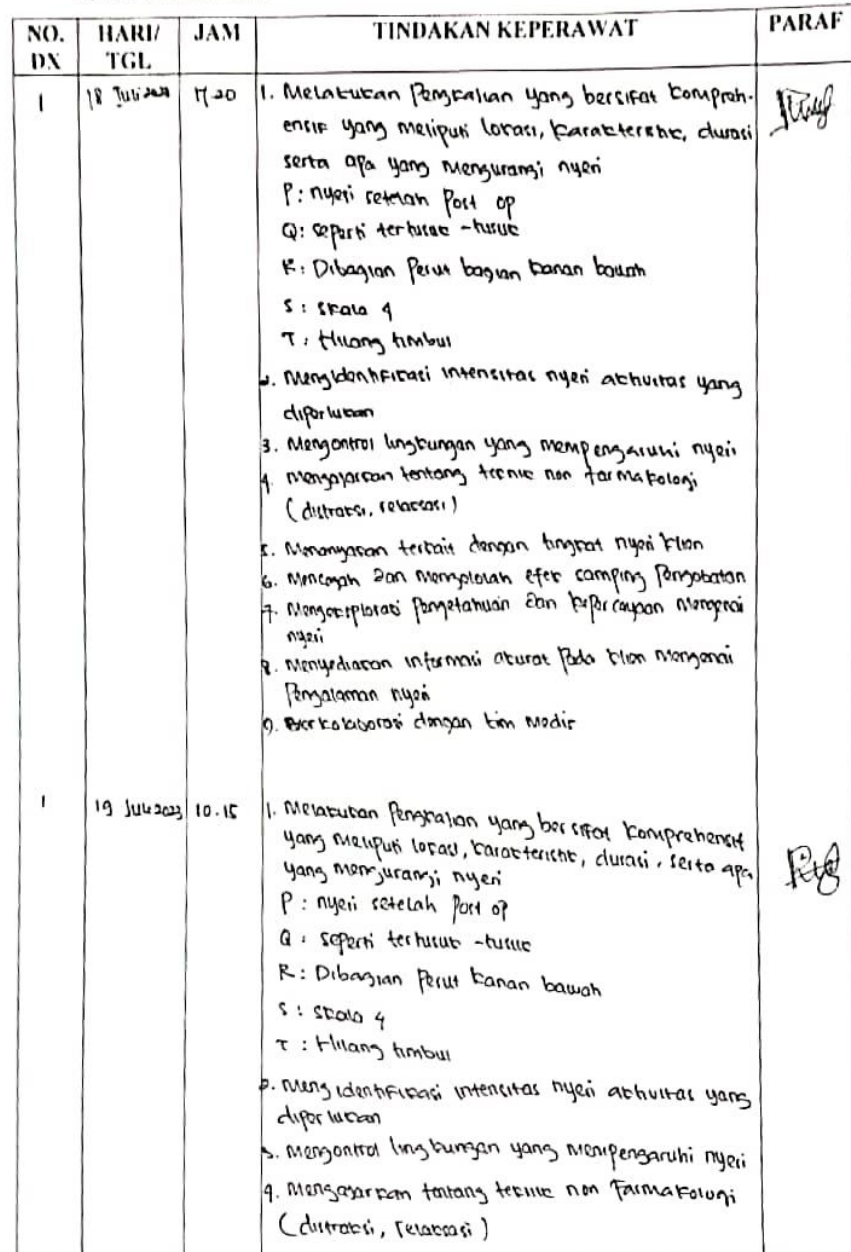 NO. DX HARI/ TGL JAM TINDAKAN KEPERAWAT PARAF
1 18 Juli 2023 17.20 1. Melakukan Pengkajian yang bersifat kompreh-
ensif yang meliputi lokasi, karakteristik, durasi
serta apa yang mengurangi nyeri
P: nyeri setelah Post op
Q: seperti tertusuk -tusuk
R: Dibagian Perut bagian kanan bawah
S: skala 4
T: Hilang timbul
2. Mengidentifikasi intensitas nyeri aktivitas yang
diperlukan
3. Mengontrol lingkungan yang mempengaruhi nyeri
4. Mengajarkan tentang teknik non farmakologi
(distraksi, relaksasi)
5. Menanyakan terkait dengan tingkat nyeri klien
6. Mencegah dan mengelolah efek samping Pengobatan
7. Mengeksplorasi Pengetahuan dan kepercayaan Mengenai
nyeri
8. Menyediakan informasi akurat Pada klien Mengenai
Pengalaman nyeri
9. Berkolaborasi dengan tim Medis
1 19 Juli 2023 10.15 1. Melakukan Pengkajian yang bersifat komprehensif
yang meliputi lokasi, karakteristik, durasi, serta apa
yang mengurangi nyeri
P: nyeri setelah Post op
Q: seperti tertusuk -tusuk
R: Dibagian Perut kanan bawah
S: skala 4
T: Hilang timbul
2. Mengidentifikasi intensitas nyeri aktivitas yang
diperlukan
3. Mengontrol lingkungan yang mempengaruhi nyeri
4. Mengajarkan tentang teknik non Farmakologi
(distraksi, relaksasi)